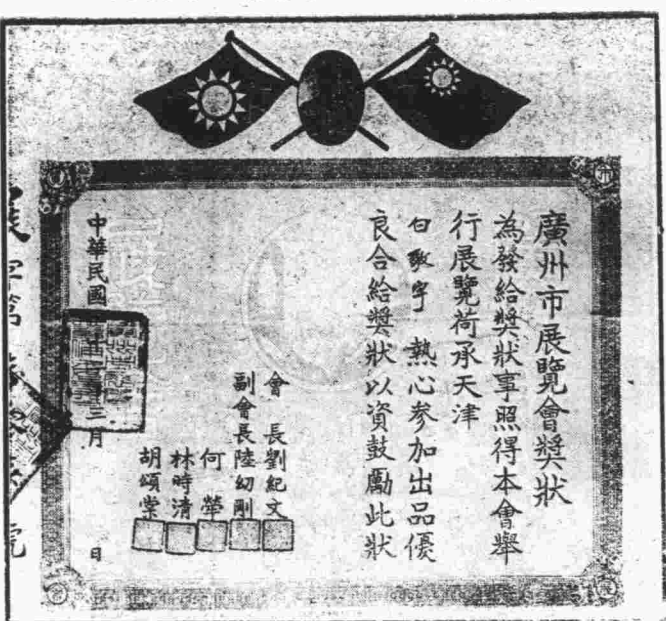 廣州市展覽會獎狀
為發給獎狀事照得本會舉
行展覽荷承天津
白敬宇 熱心參加出品優
良合給獎狀以資鼓勵此狀
會 長劉紀文
副會長陸幼剛
何犖
林時清
胡頌棠
中華民國 二月 日
字第 號